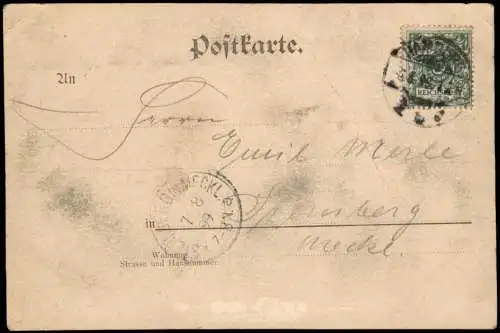 Postkarte.
An
Herrn
Emil Merle
in Sternberg
Meckl.
Wohnung
Strasse und Hausnummer
REICHSPOST